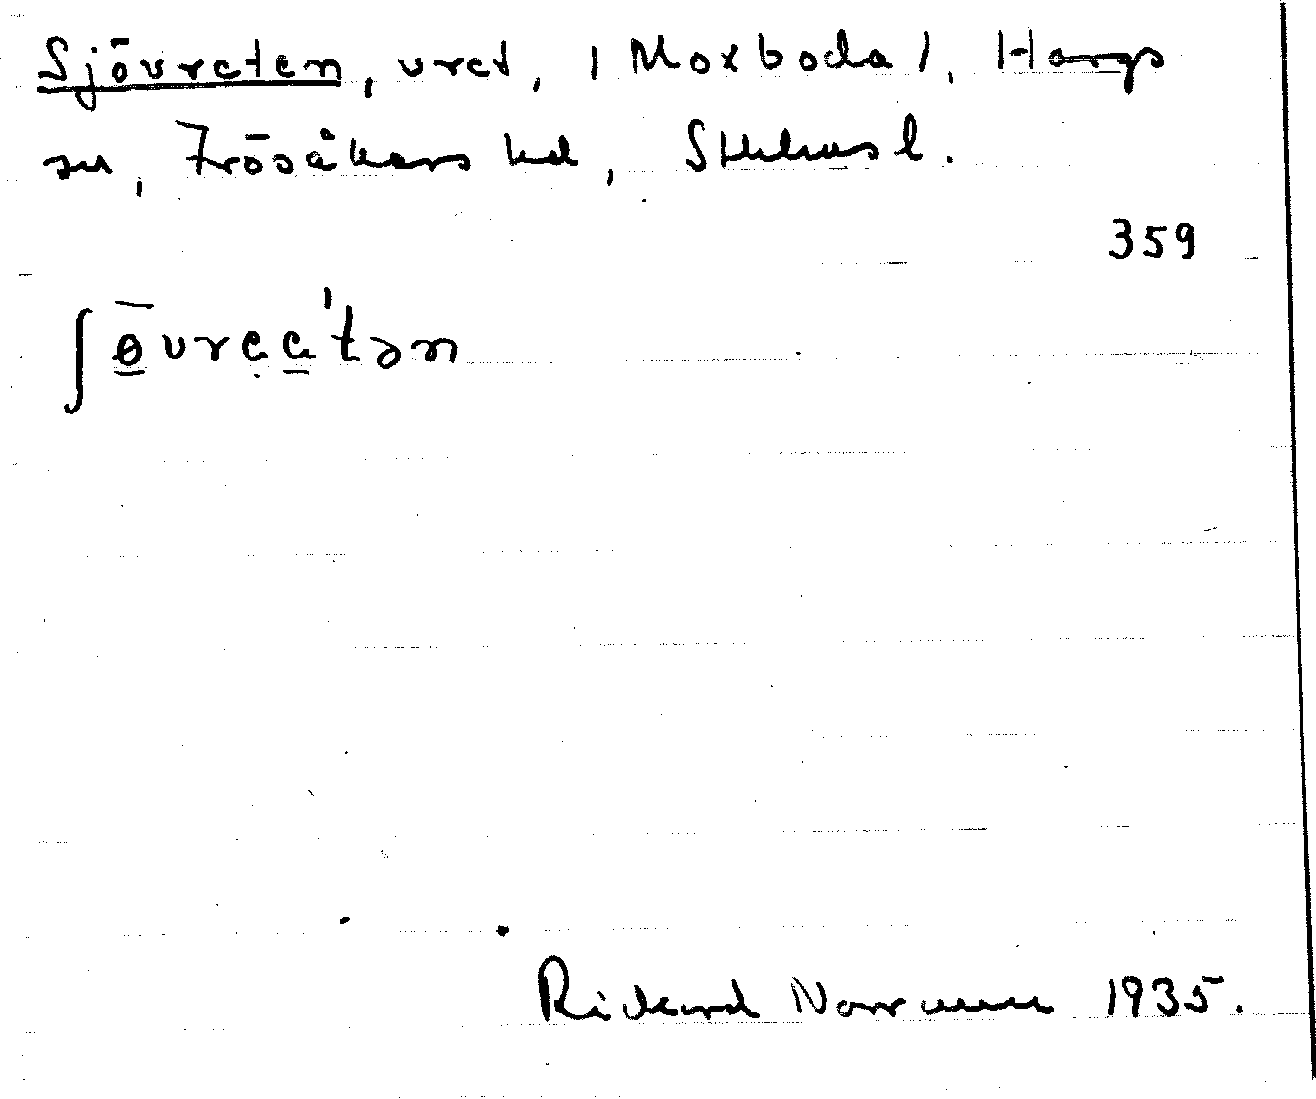 Sjövreten, vret, (Moxboda), Hargs
sn, Frösåkers hd, Sthlms l.
359
ʃø̄vrea'tən
Rickard Norrman 1935.